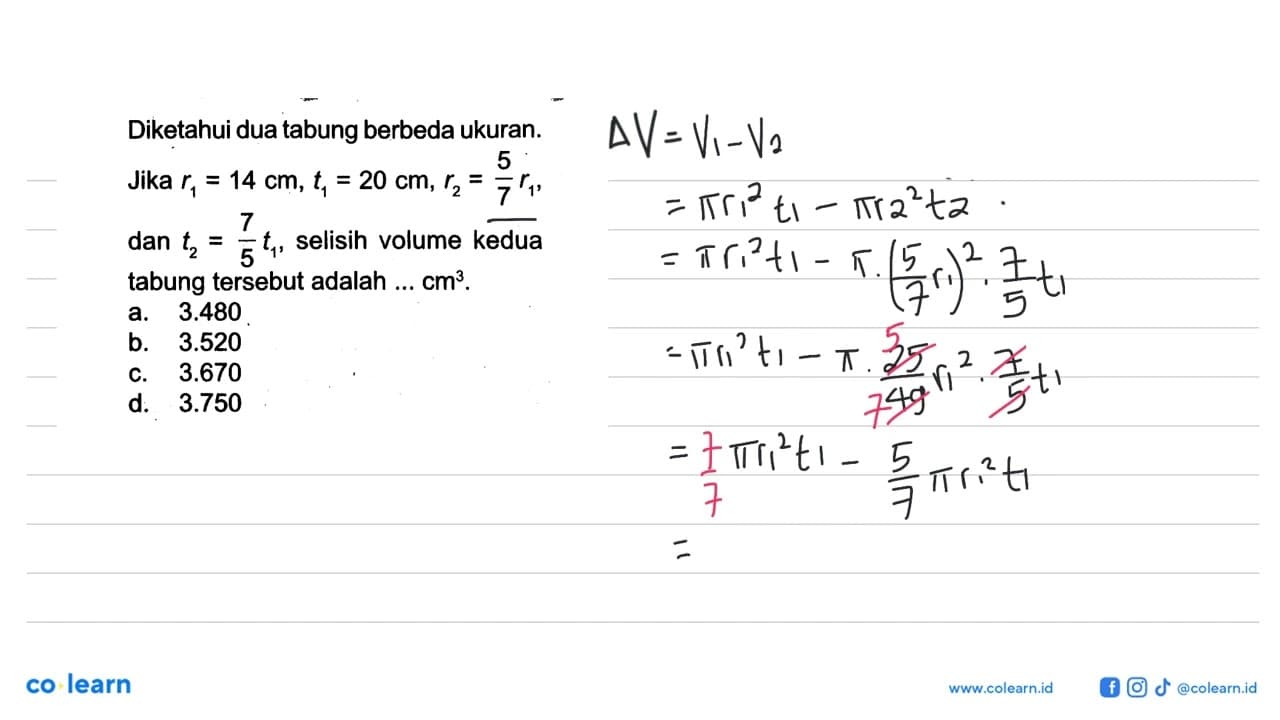 Diketahui dua tabung berbeda ukuran.
Jika r₁ = 14 cm, t₁ = 20 cm, r₂ = 5/7 r₁,
dan t₂ = 7/5 t₁, selisih volume kedua
tabung tersebut adalah ... cm³.
a. 3.480
b. 3.520
c. 3.670
d. 3.750
ΔV = V₁ - V₂
= πr₁² t₁ - πr₂² t₂
= πr₁² t₁ - π . (5/7 r₁)² . 7/5 t₁
= πr₁² t₁ - π . 5 25/7 49 r₁² . 7/5 t₁
= 7/7 πr₁² t₁ - 5/7 πr₁² t₁
=
co learn
www.colearn.id
@colearn.id